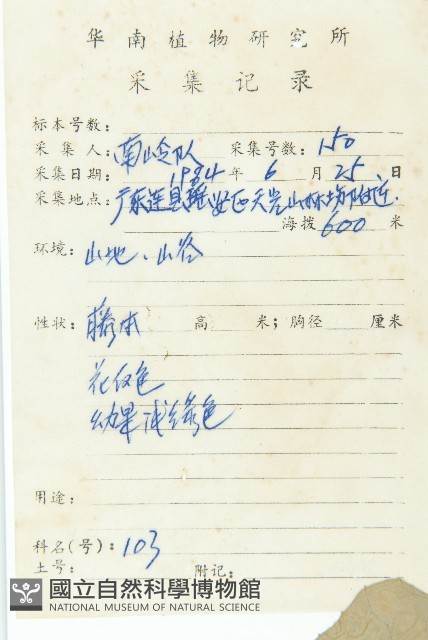 华南植物研究所
采集记录
标本号数:
采集人: 南岭队 采集号数: 150
采集日期: 1984年6月25日
采集地点: 广东连县瑶安区天岩山林场附近.
海拨600米
环境: 山地、山谷
性状: 藤本 高 米; 胸径 厘米
花红色
幼果浅绿色
用途:
科名(号): 103
土号: 附记:
國立自然科學博物館
NATIONAL MUSEUM OF NATURAL SCIENCE